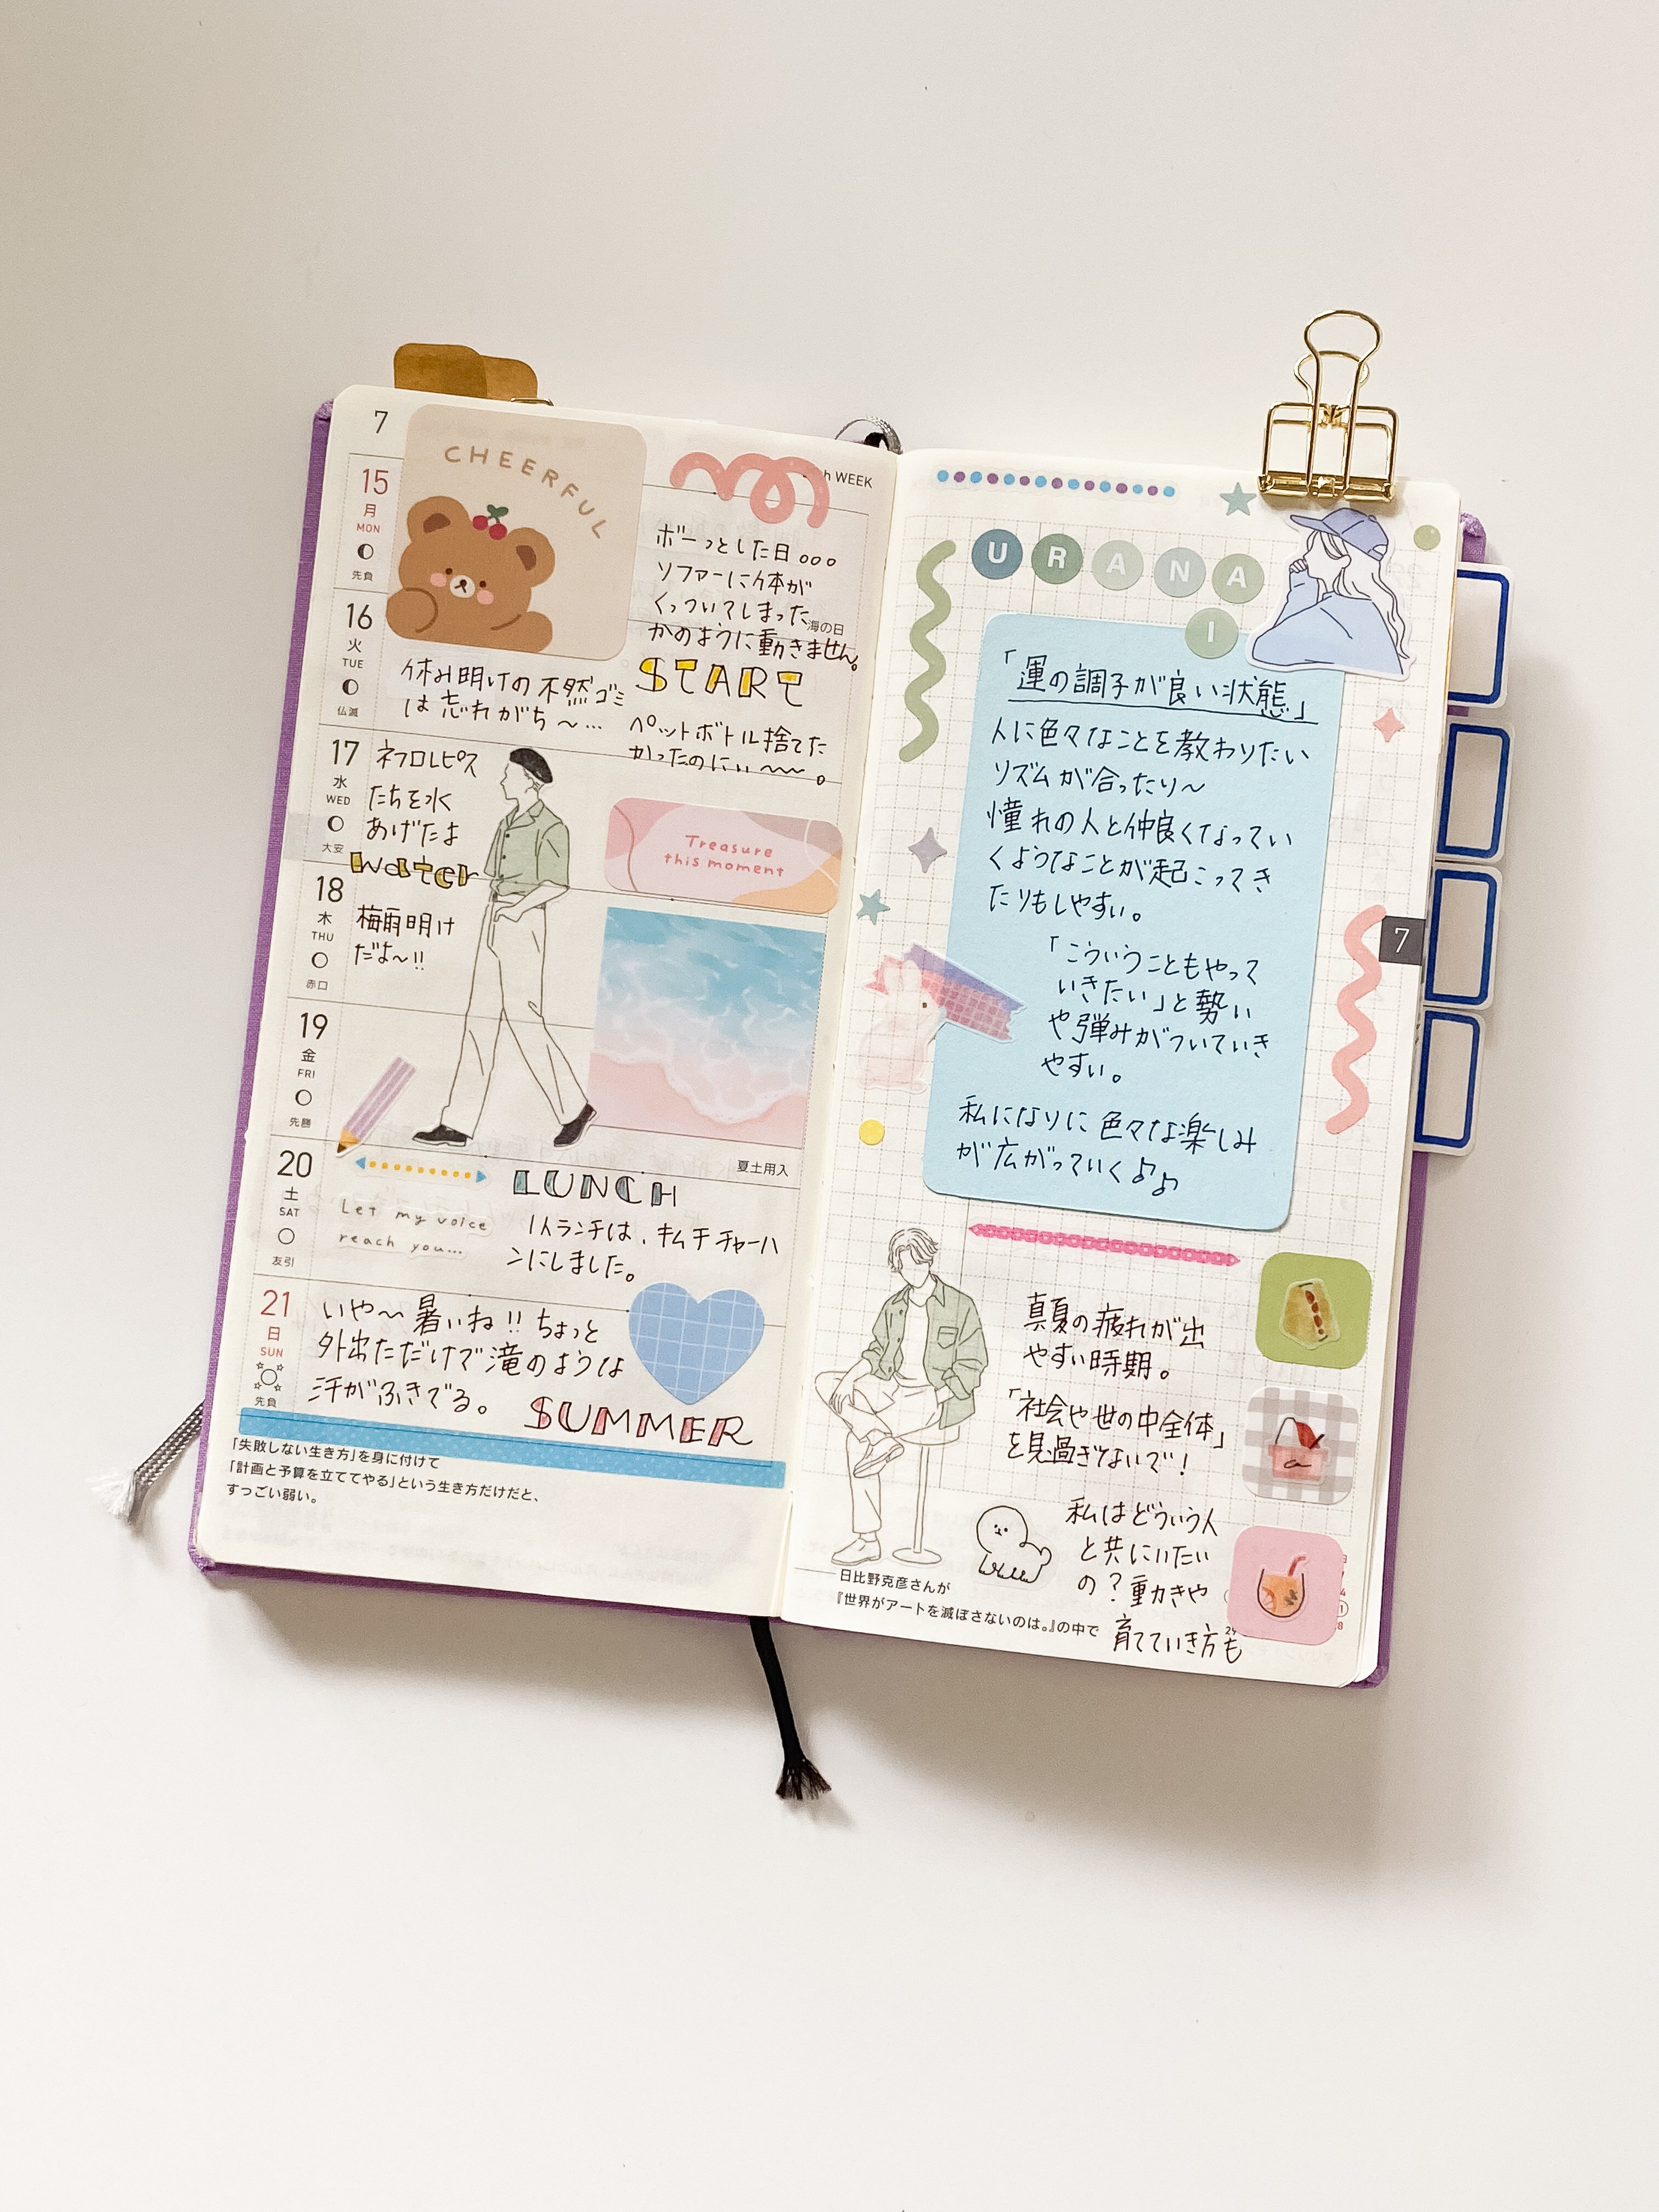 7
CHEERFUL
h WEEK
15
月
MON
先負
ボーっとした日。。。
ソファーに体が
くっついてしまった
海の日
かのように動きません。
16
火
TUE
仏滅
START
休み明けの不燃ゴミ
は忘れがち〜…
ペットボトル捨てた
かったのにぃ〜〜。
17
水
WED
大安
ネフロレピス
たちを水
あげたよ
water
Treasure
this moment
18
木
THU
赤口
梅雨明け
だよ〜!!
19
金
FRI
先勝
夏土用入
20
土
SAT
友引
LUNCH
Let my voice
reach you...
1人ランチは、キムチチャーハ
ンにしました。
21
日
SUN
先負
いや〜暑いね!!ちょっと
外出ただけで滝のような
汗がふきでる。
SUMMER
「失敗しない生き方」を身に付けて
「計画と予算を立ててやる」という生き方だけだと、
すっごい弱い。
URANA
I
「運の調子が良い状態」
人に色々なことを教わりたい
リズムが合ったり〜
憧れの人と仲良くなってい
くようなことが起こってき
たりもしやすい。
「こういうこともやって
いきたい」と勢い
や弾みがついていき
やすい。
私になりに色々な楽しみ
が広がっていく♪♪
7
真夏の疲れが出
やすい時期。
「社会や世の中全体」
を見過ぎないで!
私はどういう人
と共にいたい
の?動きや
育てていき方も
日比野克彦さんが
『世界がアートを滅ぼさないのは。』の中で